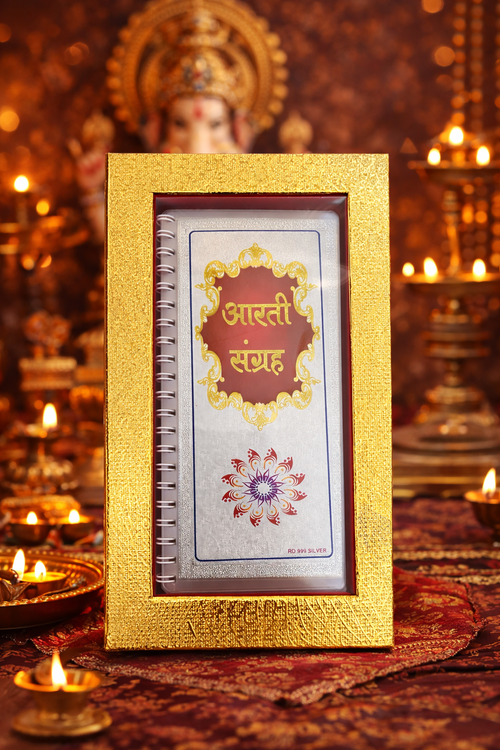 आरती
संग्रह
RD 999 SILVER